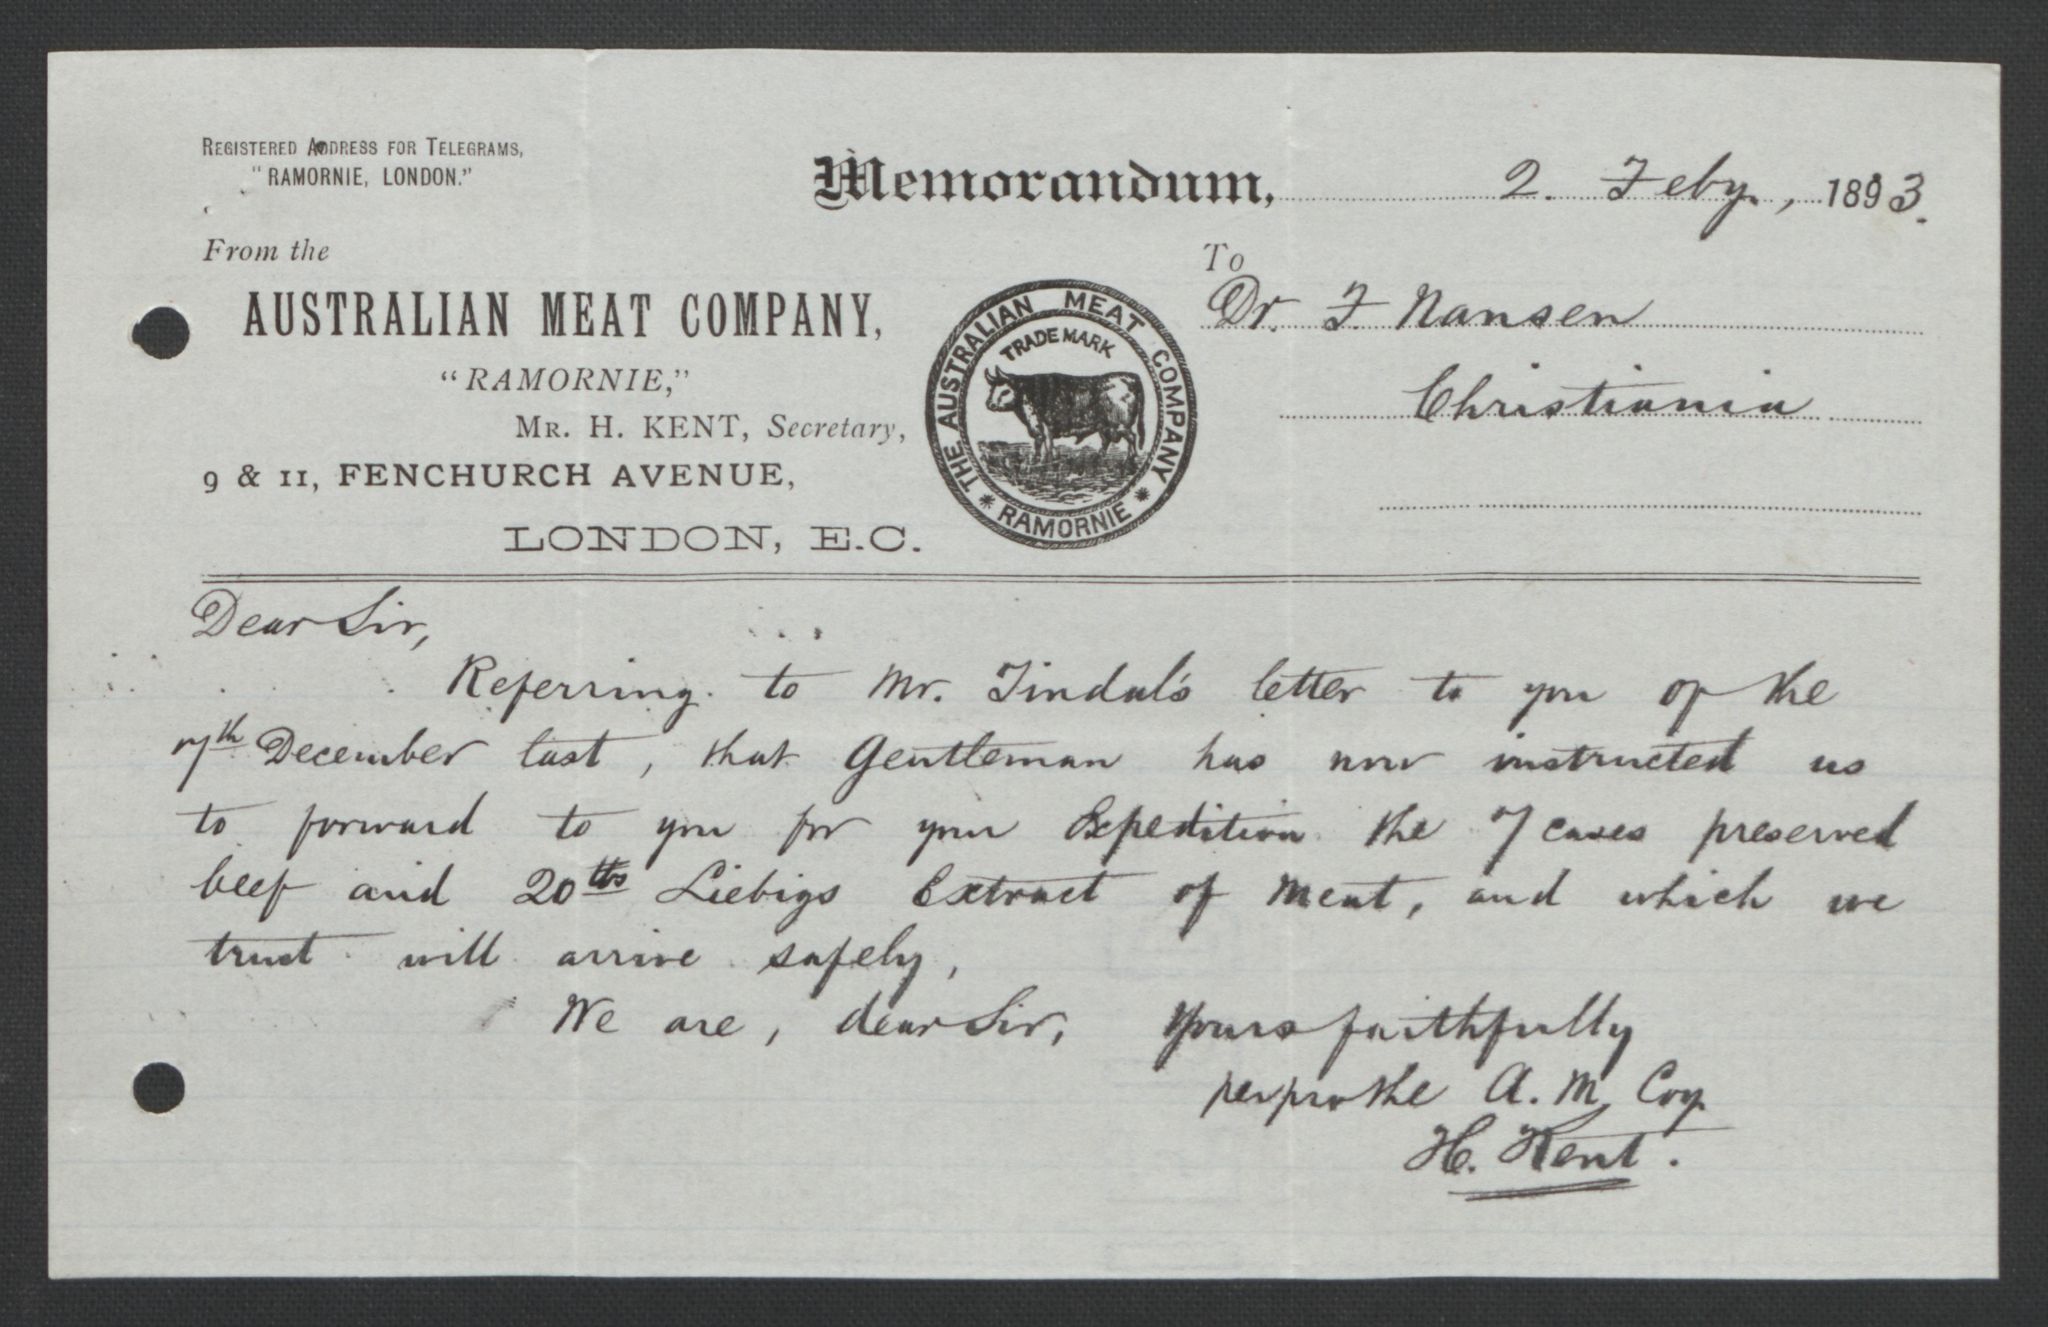 REGISTERED ADDRESS FOR TELEGRAMS,
"RAMORNIE, LONDON."
Memorandum, 2. Feby., 1893.
From the
AUSTRALIAN MEAT COMPANY,
"RAMORNIE,"
MR. H. KENT, Secretary,
9 & 11, FENCHURCH AVENUE,
LONDON, E.C.
THE AUSTRALIAN MEAT COMPANY
TRADE MARK
* RAMORNIE *
To
Dr. F Nansen
Christiania
Dear Sir,
Referring to Mr. Tindal's letter to you of the
7th December last, that Gentleman has now instructed us
to forward to you for your Expedition the 7 cases preserved
beef and 20 lbs Liebigs Extract of Meat, and which we
trust will arrive safely,
We are, dear Sir, Yours faithfully
per pro the A. M. Coy
H. Kent.